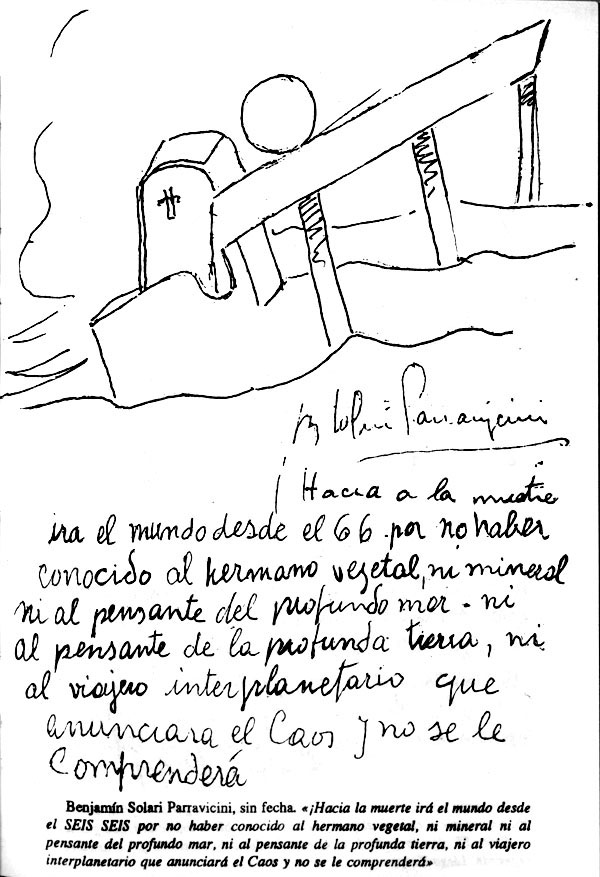 B Solari Parravicini
¡Hacia a la muerte
ira el mundo desde el 66 por no haber
conocido al hermano vegetal, ni mineral
ni al pensante del profundo mar - ni
al pensante de la profunda tierra, ni
al viajero interplanetario que
anunciara el Caos y no se le
Comprenderá
Benjamín Solari Parravicini, sin fecha. «¡Hacia la muerte irá el mundo desde
el SEIS SEIS por no haber conocido al hermano vegetal, ni mineral ni al
pensante del profundo mar, ni al pensante de la profunda tierra, ni al viajero
interplanetario que anunciará el Caos y no se le comprenderá»